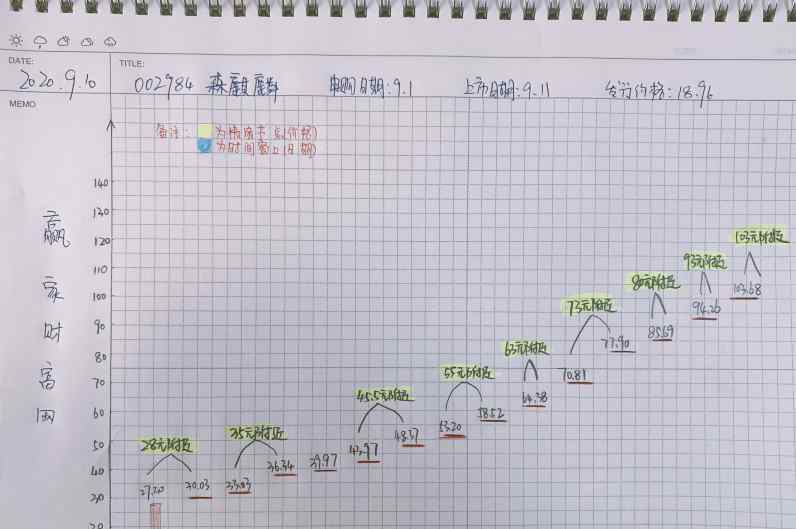 DATE:
2020.9.10
TITLE:
002984 森麒麟 申购日期:9.1 上市日期:9.11 发行价格:18.96
MEMO
备注: 为横
为时间窗口(日期)
赢家财富网
140
130
120
110
100
90
80
70
60
50
40
30
20
28元附近
35元附近
45.5元附近
55元附近
63元附近
73元附近
80元附近
93元附近
103元附近
27.30 30.03 33.03 36.34 39.97 43.97 48.37 53.20 58.52 64.38 70.81 77.90 85.69 94.26 103.68